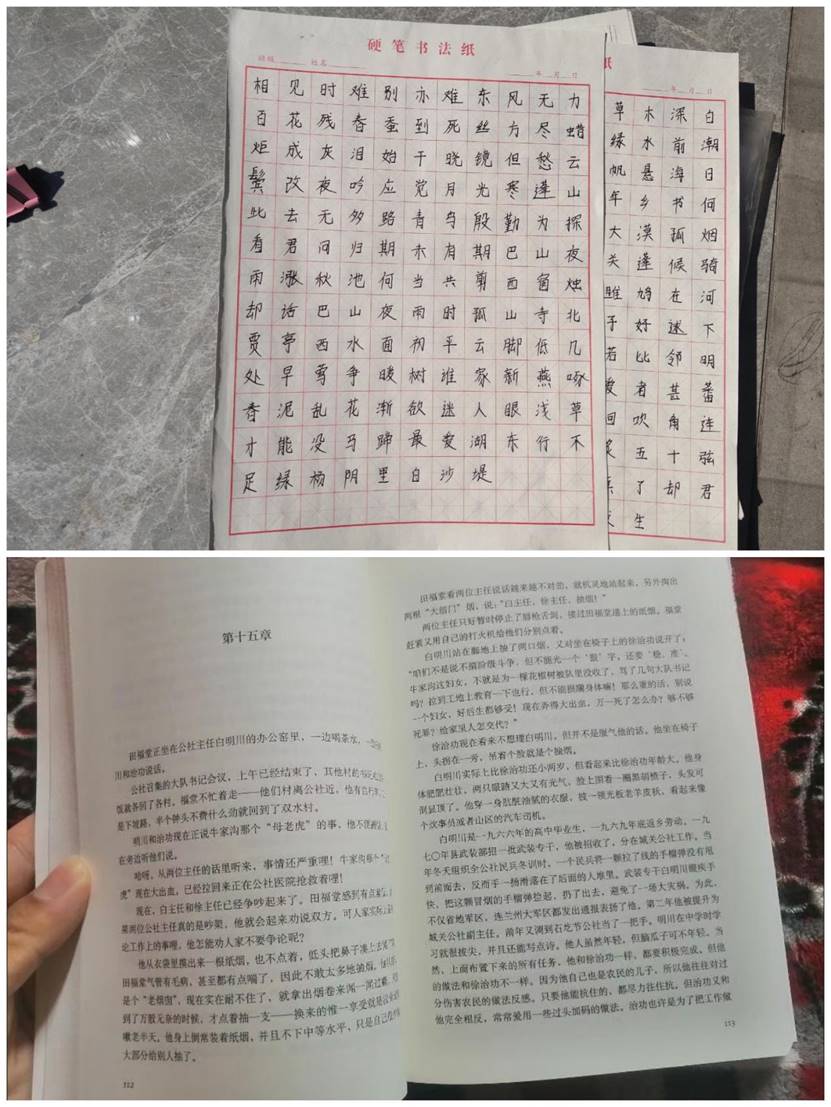 硬笔书法纸
班级 姓名 年 月 日
相见时难别亦难东风无力
百花残春蚕到死丝方尽蜡
炬成灰泪始干晓镜但愁云
鬓改夜吟应觉月光寒蓬山
此去无多路青鸟殷勤为探
看君问归期未有期巴山夜
雨涨秋池何当共剪西窗烛
却话巴山夜雨时孤山寺北
贾亭西水面初平云脚低几
处早莺争暖树谁家新燕啄
春泥乱花渐欲迷人眼浅草
才能没马蹄最爱湖东行不
足绿杨阴里白沙堤
纸
年 月 日
草木深白
缘水前潮
帆悬海日
年乡书何
大漠孤烟
关逢候骑
雎鸠在河
子好逑下
若比邻明
者甚蕃
回吹角连
五十弦
了却君
生
第十五章
田福堂正坐在公社主任白明川的办公窑里，一边喝茶水，一
川和治功说话。
公社召集的大队书记会议，上午已经结束了，其他村的
饭就各回了各村。福堂不忙着走——他们村离公社近，他有
是下坡路，半个钟头不费什么劲就回到了双水村。
明川和治功现在正说牛家沟那个“母老虎”的事，他不便
在旁边听他们说。
哈呀，从两位主任的话里听来，事情还严重哩！牛家沟那个
虎”现在大出血，已经拉回来正在公社医院抢救着哩！
现在，白主任和徐主任已经争吵起来了。田福堂感到有点
果两位公社主任真的是吵架，他就会起来劝说双方。可人家实际上
论工作上的事哩，他怎能劝人家不要争论呢？
他从衣袋里摸出来一根纸烟，也不点着，低头把鼻子凑上去
田福堂气管有毛病，甚至都有点喘了，因此不敢太多地抽烟。
是个“老烟囱”，现在实在耐不住了，就拿出烟卷来闻一闻过瘾。
到了万般无奈的时候，才点着抽一支——换来的惟一享受就是
嗽老半天。他身上倒常装着纸烟，并且不下中等水平，只是自己
大部分给别人抽了。
112
田福堂看两位主任说话越来越不对劲，就机灵地站起来，另外掏出
两根“大前门”烟，说：“白主任、徐主任，抽烟！”
两位主任只好暂时停止了唇枪舌剑，接过田福堂递上的纸烟。福堂
赶紧又用自己的打火机给他们分别点着。
白明川站在脚地上抽了两口烟，又对坐在椅子上的徐治功说开了：
“咱们不是说不搞阶级斗争，但不能光一个‘狠’字，还要‘稳、准’。
牛家沟这妇女，不就是为一棵花椒树被队里没收了，骂了几句大队书记
吗？拉到工地上教育一下也行，但不能损阑身体嘛！那么重的活，别说
一个妇女，好后生都够受！现在弄得大出血，万一死了怎么办？够不够
死罪？给家里人怎交代？”
徐治功现在看来不想理白明川，但并不是服气他的话。他坐在椅子
上，头拐在一旁，吊着个脸就是个抽烟。
白明川实际上比徐治功还小两岁，但看起来比徐治功年龄大。他身
体肥肥壮壮，两只眼睛又大又有光气，脸上围着一圈黑胡楂子，头发可
剃鼠顶了。他穿一身肮脏油腻的衣服，披一领光板老羊皮袄，看起来像
个炊事员或者山区的汽车司机。
白明川是一九六六年的高中毕业生，一九六九年底返乡劳动。一九
七〇年县武装部招一批武装专干，他被招收了，分在城关公社工作。当
年冬天组织全公社民兵冬训时，一个民兵将一颗拉了线的手榴弹没有甩
到前面去，反而手一扬滑落在了后面的人堆里。武装专干白明川眼疾手
快，把这颗冒烟的手榴弹捡起，扔了出去，避免了一场大灾祸。为此，
不仅省地军区，连兰州大军区都发出通报表扬了他。第二年他被提升为
城关公社副主任，前年又调到石圪节公社当了一把手。明川在中学时学
习就很拔尖，并且还能写点诗。他人虽然年轻，但脑瓜子可不年轻。当
然，上面布置下来的所有任务，他和徐治功一样，都要积极完成。但他
的做法和徐治功不一样。因为他自己也是农民的儿子，所以他往往对过
分伤害农民的做法反感。只要他能抗住的，都尽力往住抗。但治功又和
他完全相反，常常爱用一些过头加码的做法。治功也许是为了把工作做
113